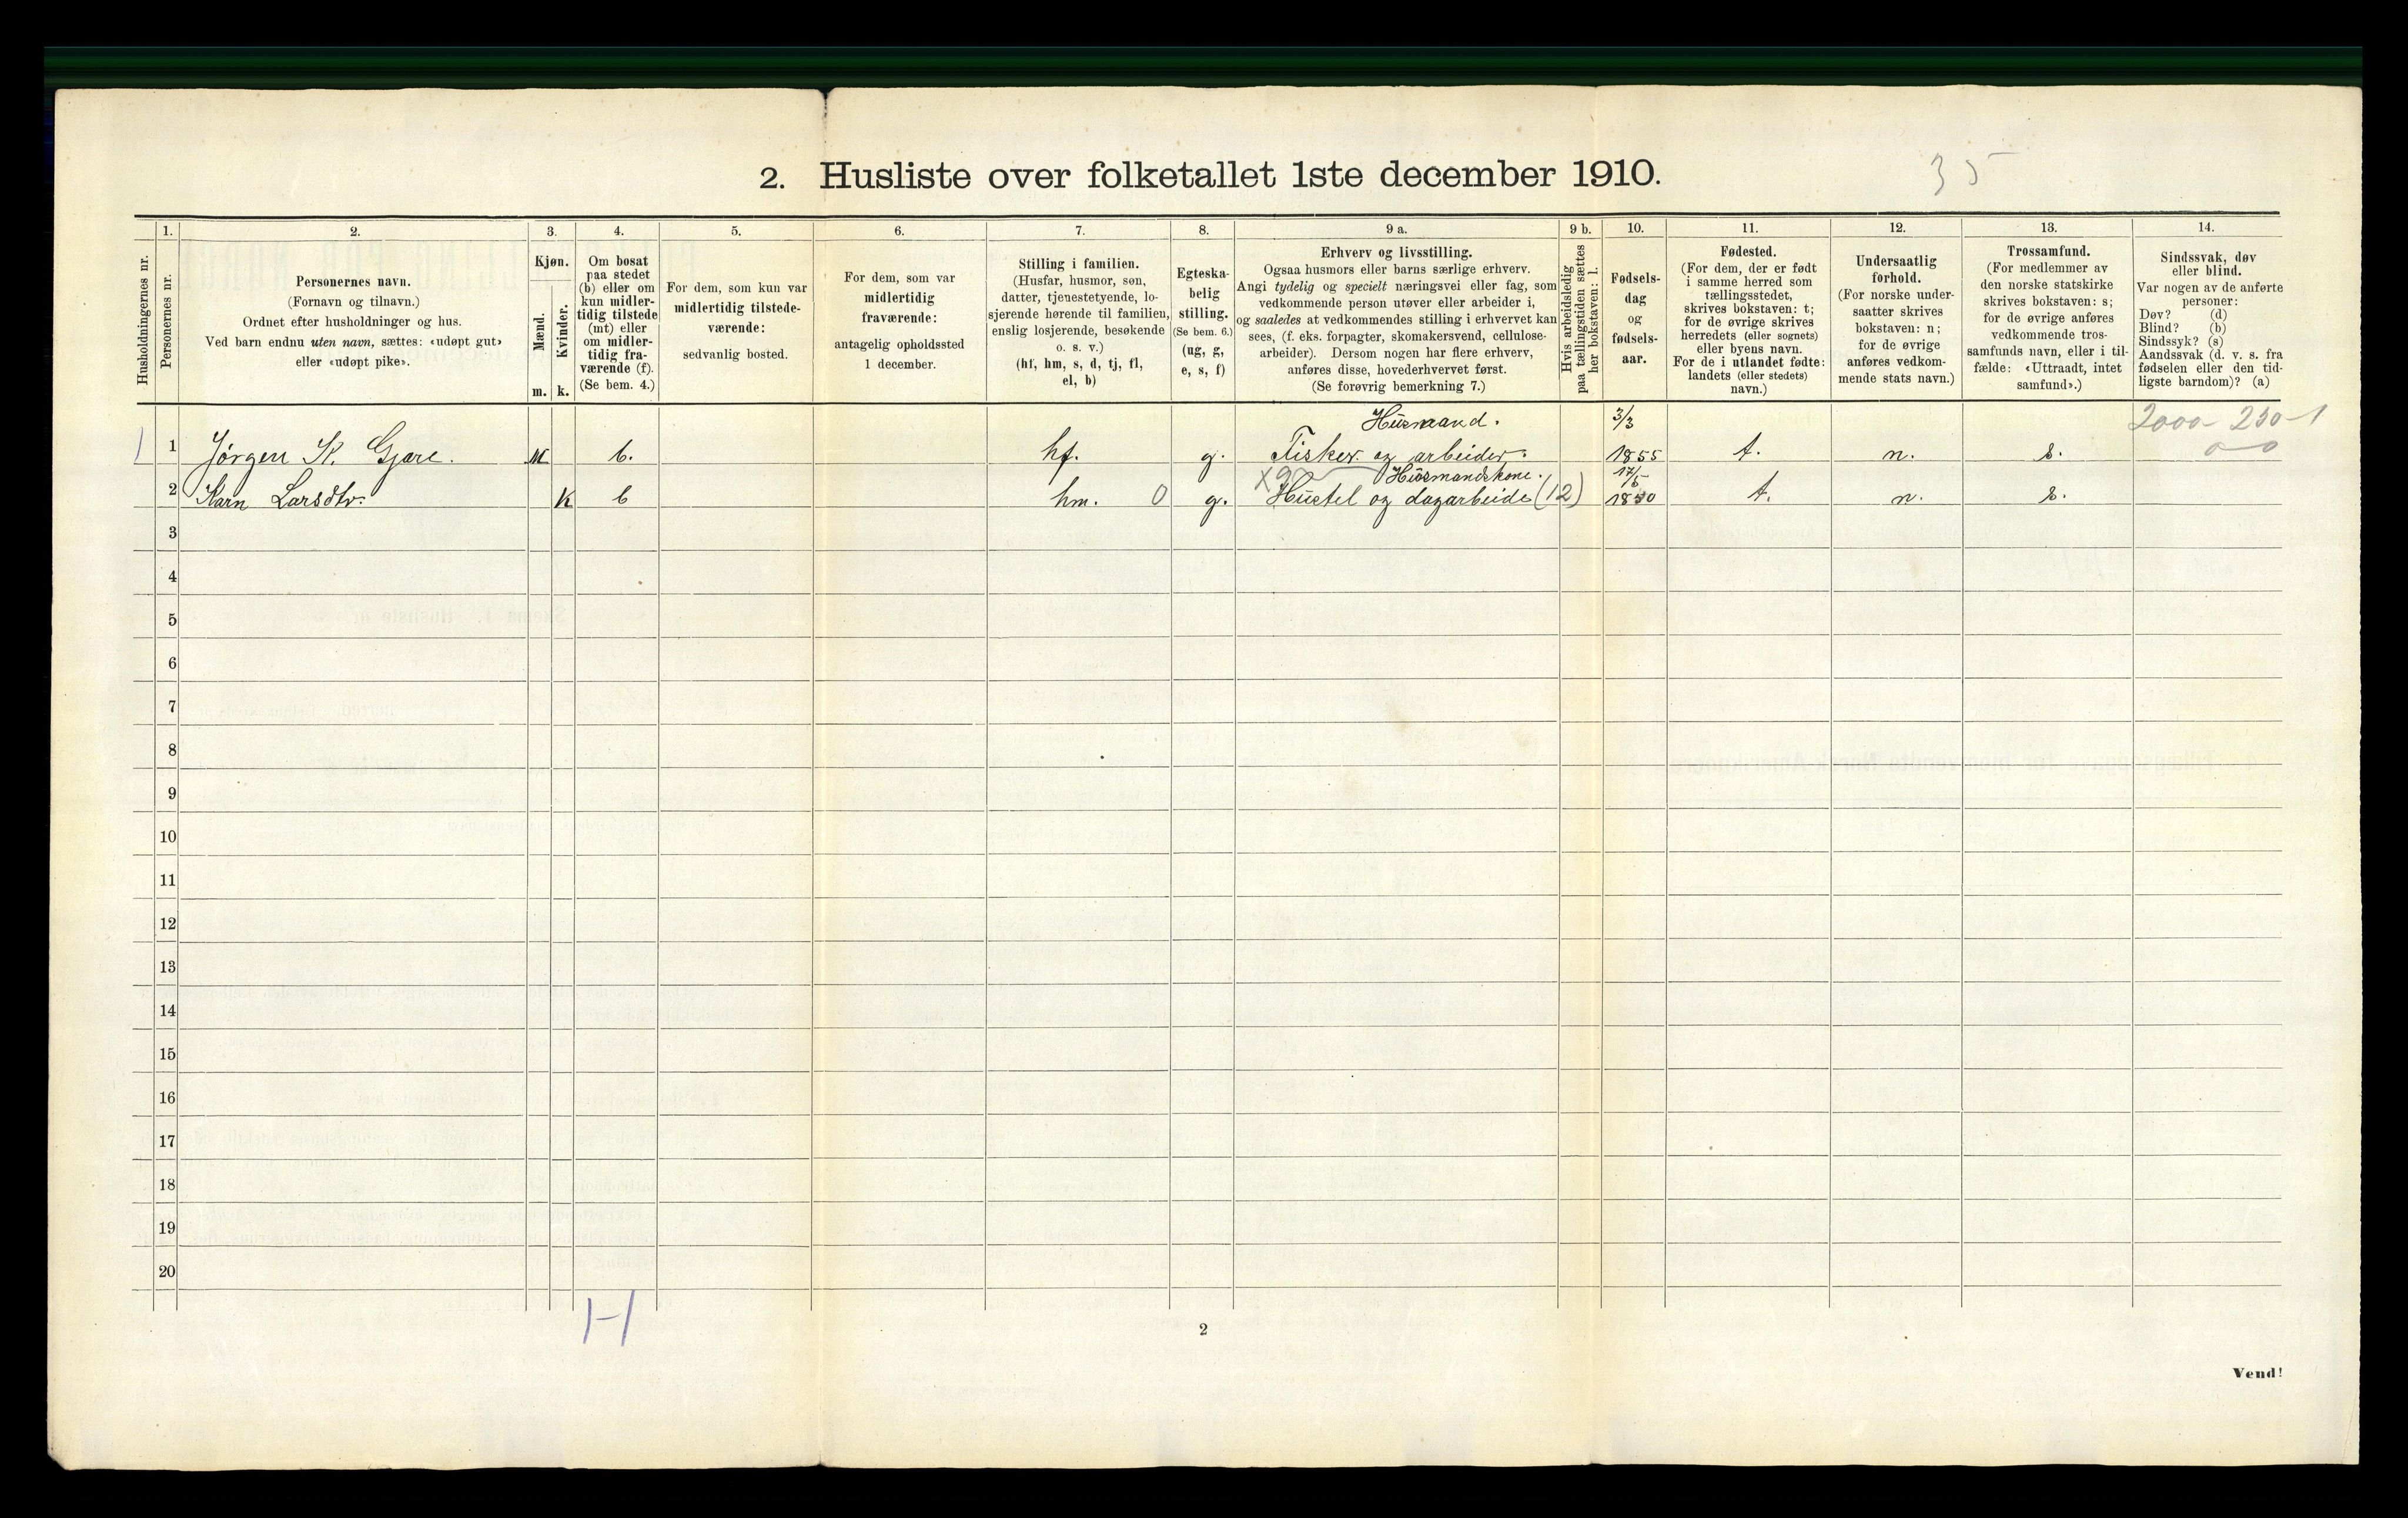 2. Husliste over folketallet 1ste december 1910.
35
1. 2. 3. 4. 5. 6. 7. 8. 9 a. 9 b. 10. 11. 12. 13. 14.
Husholdningernes nr.
Personernes nr.
Personernes navn.
(Fornavn og tilnavn.)
Ordnet efter husholdninger og hus.
Ved barn endnu uten navn, sættes: «udøpt gut»
eller «udøpt pike».
Kjøn.
Mænd.
Kvinder.
m. k.
Om bosat
paa stedet
(b) eller om
kun midler-
tidig tilstede
(mt) eller
om midler-
tidig fra-
værende (f).
(Se bem. 4.)
For dem, som kun var
midlertidig tilstede-
værende:
sedvanlig bosted.
For dem, som var
midlertidig
fraværende:
antagelig opholdssted
1 december.
Stilling i familien.
(Husfar, husmor, søn,
datter, tjenestetyende, lo-
sjerende hørende til familien,
enslig losjerende, besøkende
o. s. v.)
(hf, hm, s, d, tj, fl,
el, b)
Egteska-
belig
stilling.
(Se bem. 6.)
(ug, g,
e, s, f)
Erhverv og livsstilling.
Ogsaa husmors eller barns særlige erhverv.
Angi tydelig og specielt næringsvei eller fag, som
vedkommende person utøver eller arbeider i,
og saaledes at vedkommendes stilling i erhvervet kan
sees, (f. eks. forpagter, skomakersvend, cellulose-
arbeider). Dersom nogen har flere erhverv,
anføres disse, hovederhvervet først.
(Se forøvrig bemerkning 7.)
Hvis arbeidsledig
paa tællingstiden sættes
her bokstaven: l.
Fødsels-
dag
og
fødsels-
aar.
Fødested.
(For dem, der er født
i samme herred som
tællingsstedet,
skrives bokstaven: t;
for de øvrige skrives
herredets (eller sognets)
eller byens navn.
For de i utlandet fødte:
landets (eller stedets)
navn.)
Undersaatlig
forhold.
(For norske under-
saatter skrives
bokstaven: n;
for de øvrige
anføres vedkom-
mende stats navn.)
Trossamfund.
(For medlemmer av
den norske statskirke
skrives bokstaven: s;
for de øvrige anføres
vedkommende tros-
samfunds navn, eller i til-
fælde: «Uttraadt, intet
samfund».)
Sindssvak, døv
eller blind.
Var nogen av de anførte
personer:
Døv? (d)
Blind? (b)
Sindssyk? (s)
Aandssvak (d. v. s. fra
fødselen eller den tid-
ligste barndom)? (a)
Husmand. 3/3 2000-230-1
1 1 Jørgen K. Gjære. M b. hf. g. Fisker og arbeider. 1855 t. n. s. 0-0
Husmandskone. 17/5
2 Karn Larsdtr. K b hm. 0 g. Hustel og dagarbeide (12) t. n. s.
3
4
5
6
7
8
9
10
11
12
13
14
15
16
17
18
19
20
1-1
2
Vend!